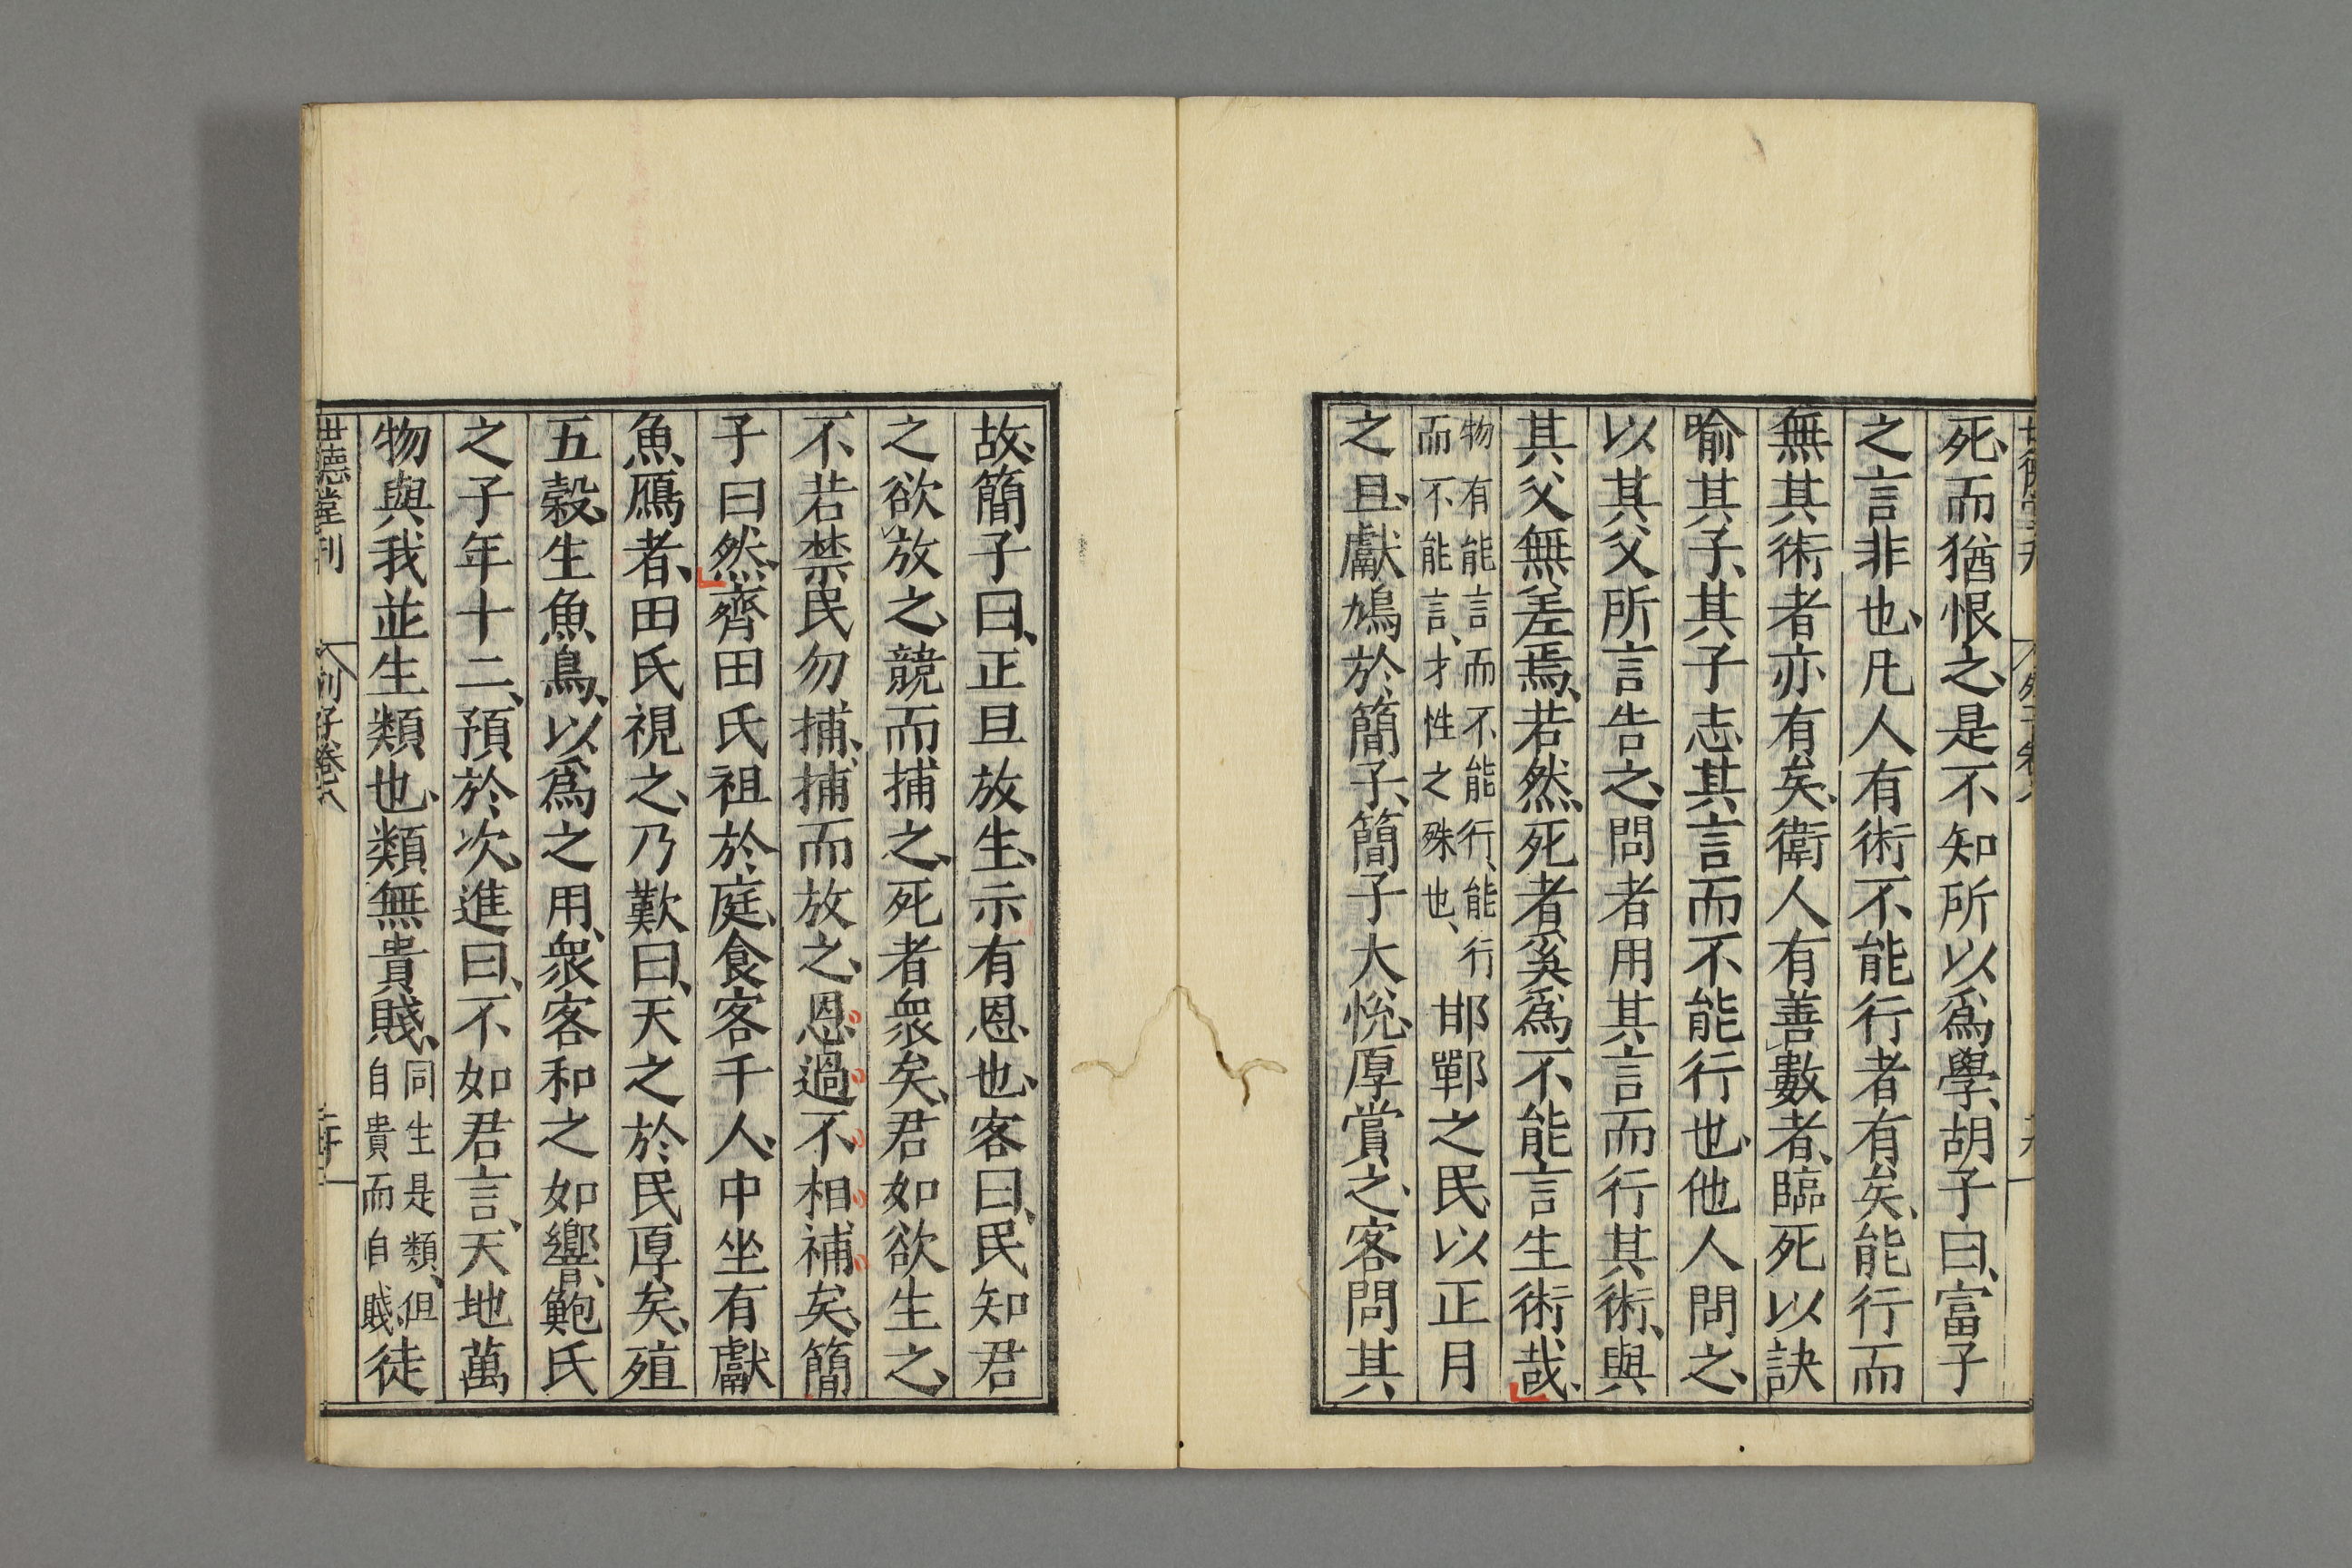 死、而猶恨之、是不知所以爲學、胡子曰、富子
之言非也、凡人有術不能行者有矣、能行而
無其術者亦有矣、衛人有善數者、臨死以訣
喻其子、其子志其言而不能行也、他人問之、
以其父所言告之、問者用其言而行其術、與
其父無差焉、若然、死者奚爲不能言生術哉、
物有能言而不能行、能行
而不能言、才性之殊也、
邯鄲之民、以正月
之旦、獻鳩於簡子、簡子大悅、厚賞之、客問其
故、簡子曰、正旦放生、示有恩也、客曰、民知君
之欲放之、競而捕之、死者衆矣、君如欲生之、
不若禁民勿捕、捕而放之、恩過不相補矣、簡
子曰然、齊田氏祖於庭、食客千人、中坐有獻
魚鴈者、田氏視之、乃歎曰、天之於民厚矣、殖
五穀、生魚鳥、以爲之用、衆客和之如響、鮑氏
之子年十二、預於次、進曰、不如君言、天地萬
物與我並生類也、類無貴賤、
同生是類、但
自貴而自賤、
徒
世德堂刊
列子卷八